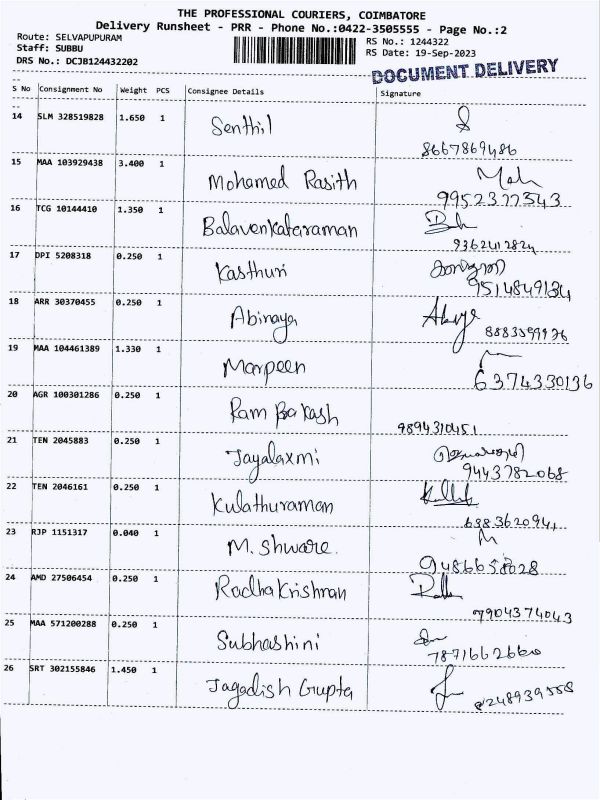 THE PROFESSIONAL COURIERS, COIMBATORE
Delivery Runsheet - PRR - Phone No.:0422-3505555 - Page No.:2
Route: SELVAPUPURAM
Staff: SUBBU
DRS No.: DCJB124432202
RS No.: 1244322
RS Date: 19-Sep-2023
DOCUMENT DELIVERY
S No Consignment No Weight PCS Consignee Details Signature
14 SLM 328519828 1.650 1 Senthil
8667869486
15 MAA 103929438 3.400 1 Mohamed Rasith
16 TCG 10144410 1.350 1 Balavenkataraman
9362412824
17 DPI 5208318 0.250 1 Kasthuri
9514849134
18 ARR 30370455 0.250 1 Abinaya
19 MAA 104461389 1.330 1 Marpeen
6374330136
20 AGR 100301286 0.250 1 Ram Bakash
9894310451
21 TEN 2045883 0.250 1 Jayalaxmi
9443782068
22 TEN 2046161 0.250 1 Kulathuraman
638362094,
23 RJP 1151317 0.040 1 M. Shware.
24 AMD 27506454 0.250 1 Radhakrishnan
7904374043
25 MAA 571200288 0.250 1 Subhashini
7871662660
26 SRT 302155846 1.450 1 Jagadish Gupta